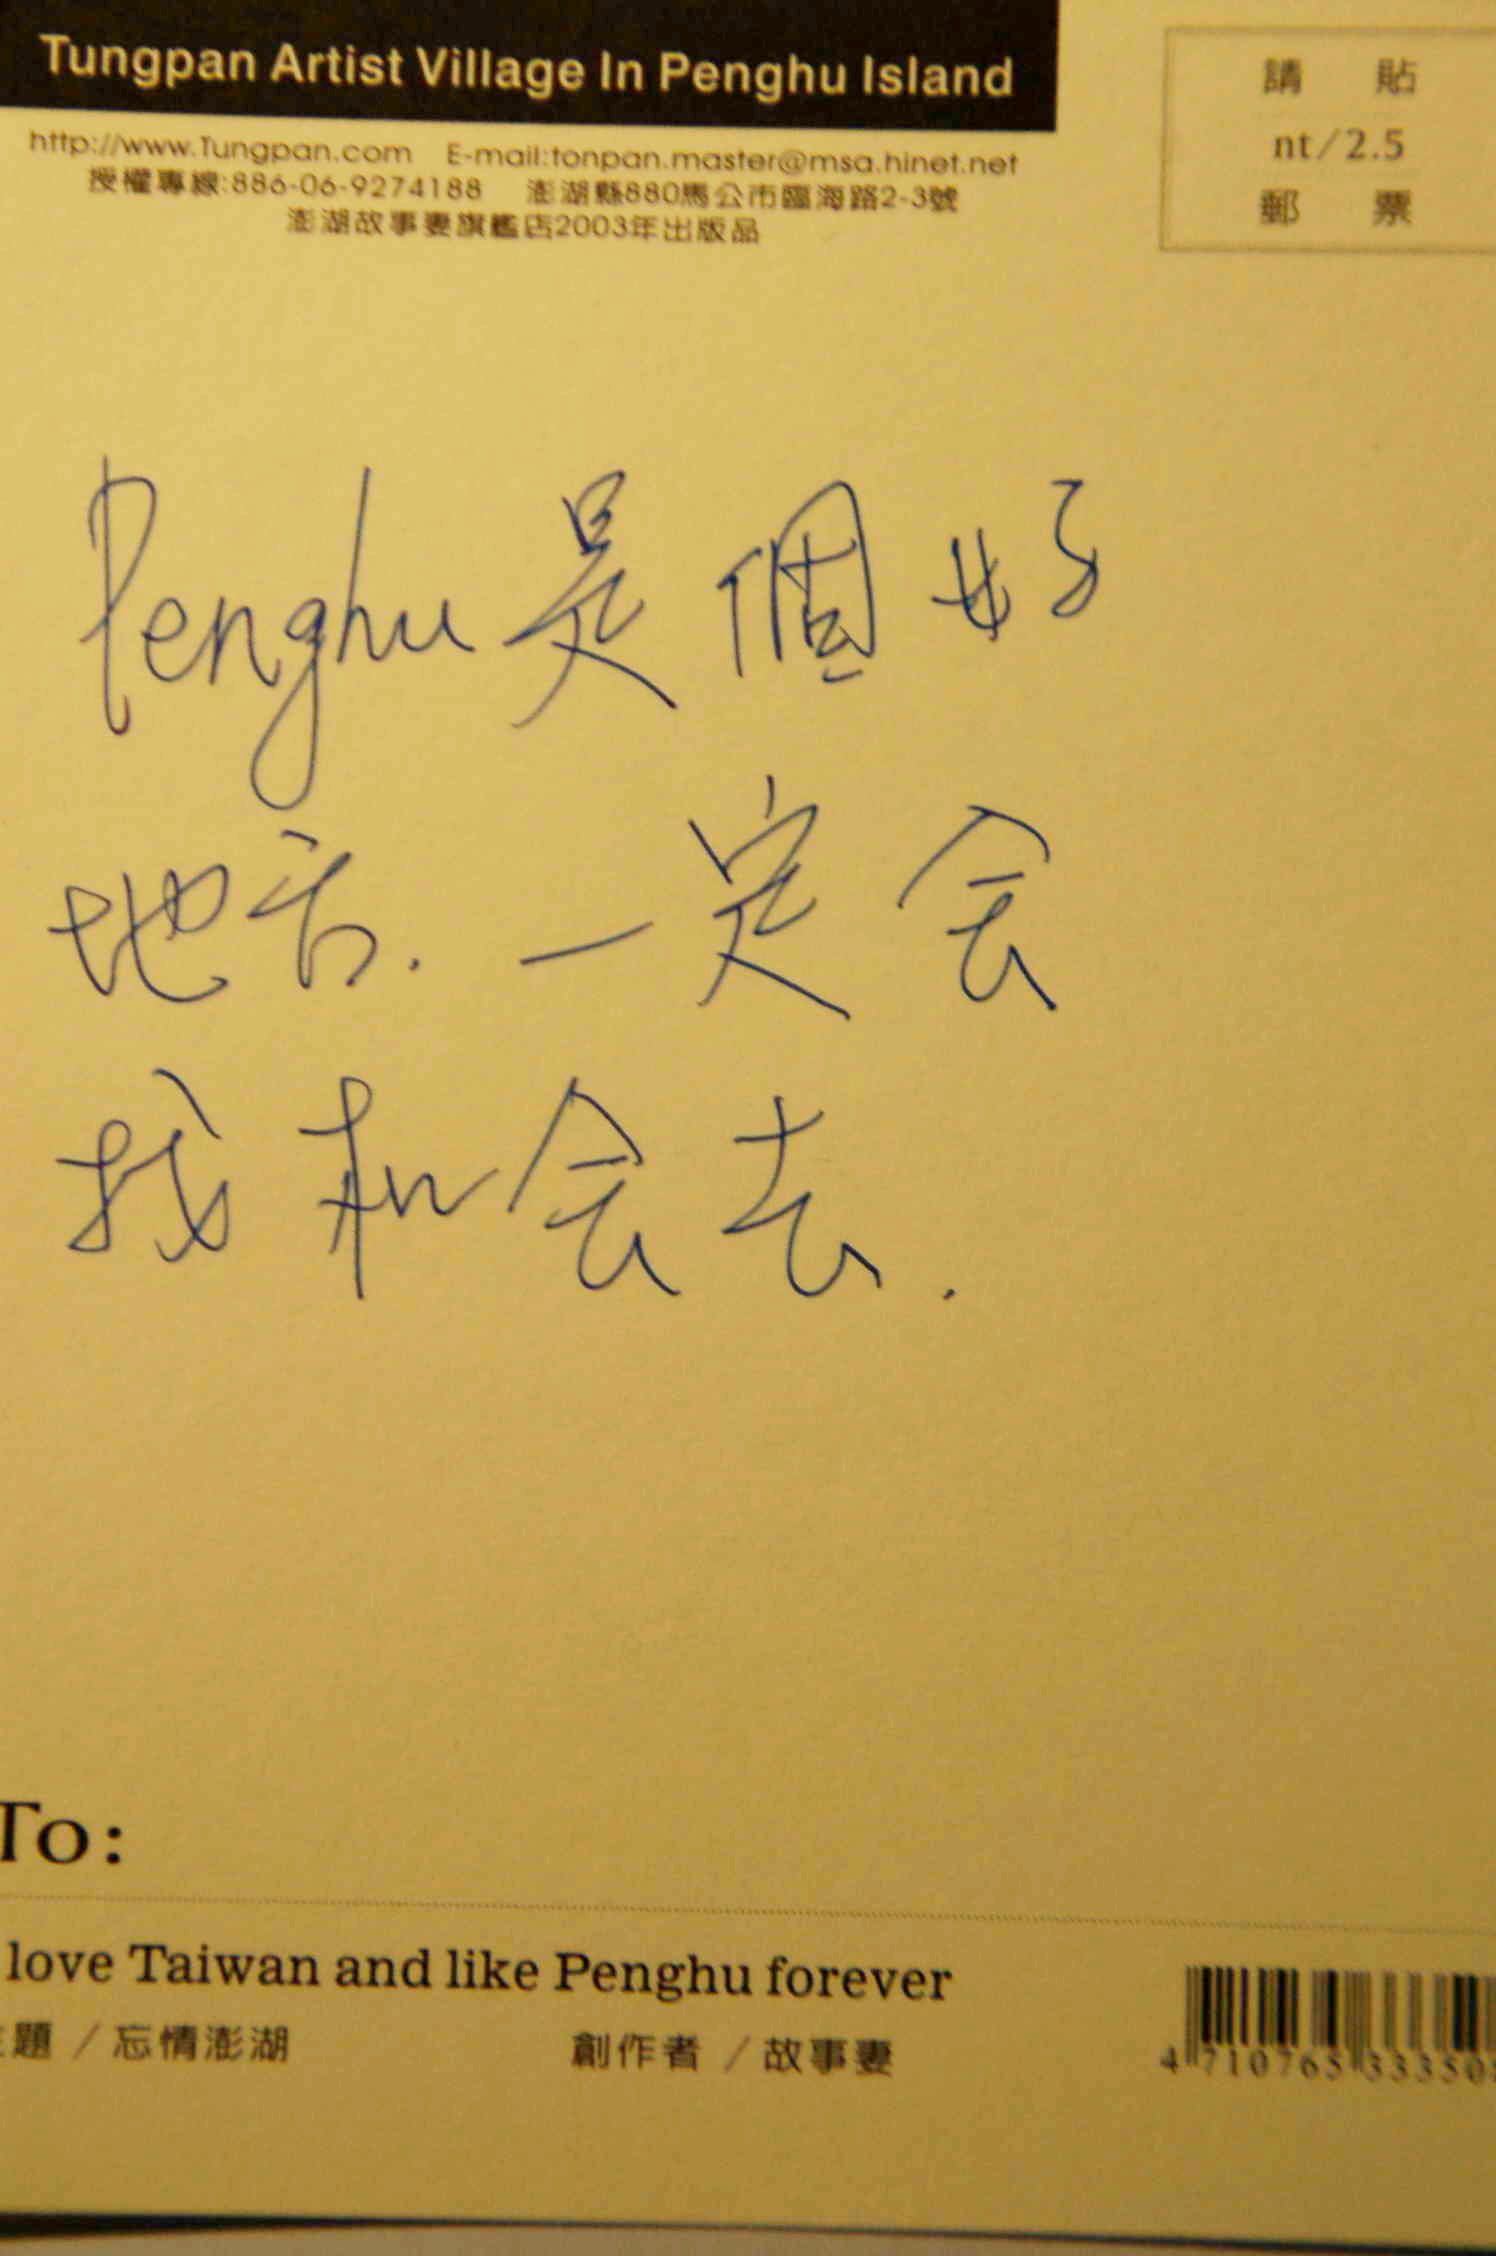 Tungpan Artist Village In Penghu Island
http://www.Tungpan.com E-mail:tonpan.master@msa.hinet.net
授權專線:886-06-9274188 澎湖縣880馬公市臨海路2-3號
澎湖故事妻旗艦店2003年出版品
請 貼
nt/2.5
郵 票
Penghu是個好
地方.一定会
找机会去.
To:
love Taiwan and like Penghu forever
題 / 忘情澎湖 創作者 / 故事妻
4 710765 33350